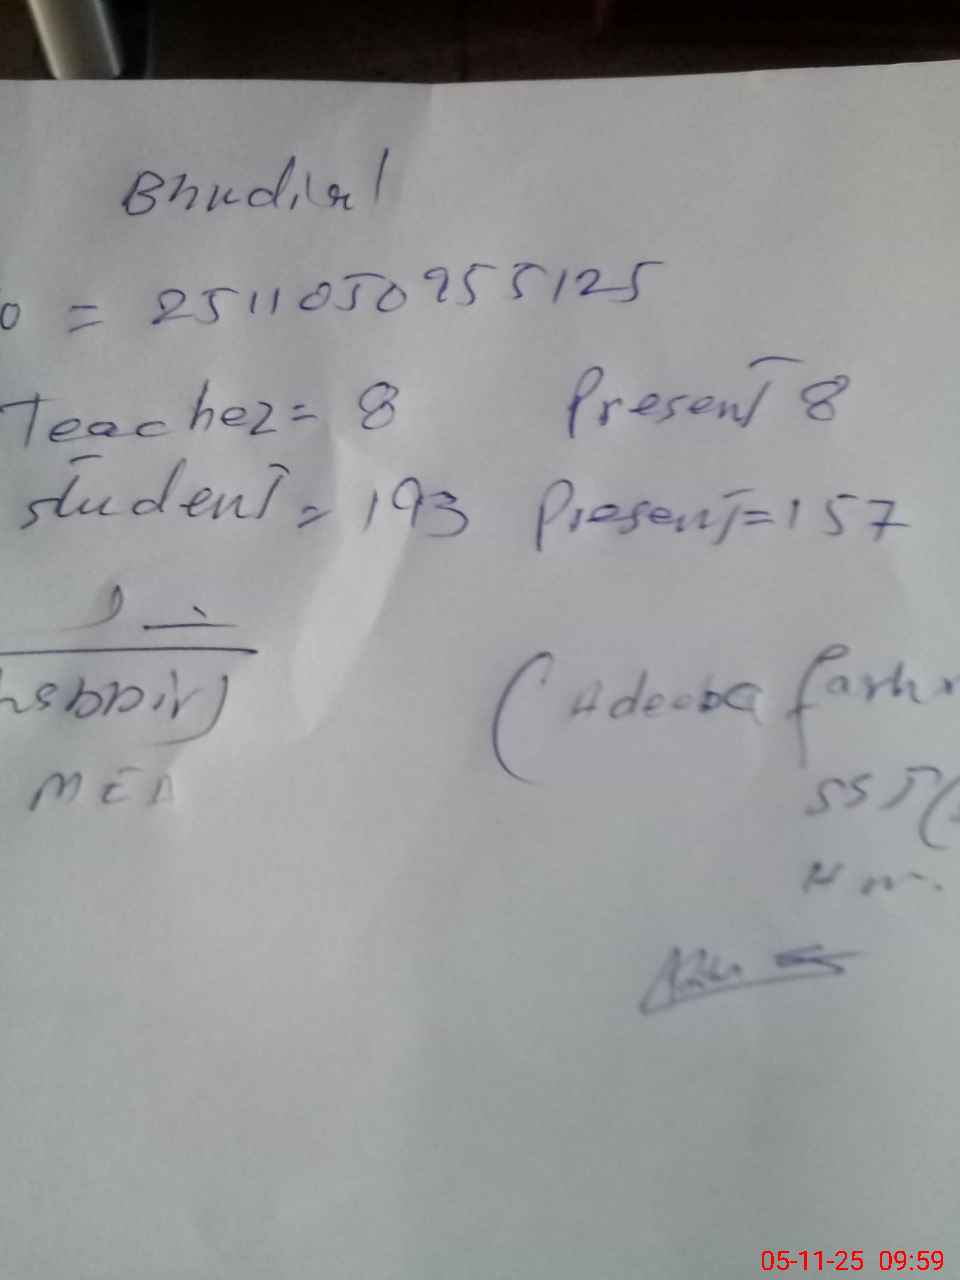 Bhudial
o = 2511050955125
Teacher = 8 Present 8
Student = 193 Present = 157
(Adeeba
MEA
SST(
Hm.
05-11-25 09:59